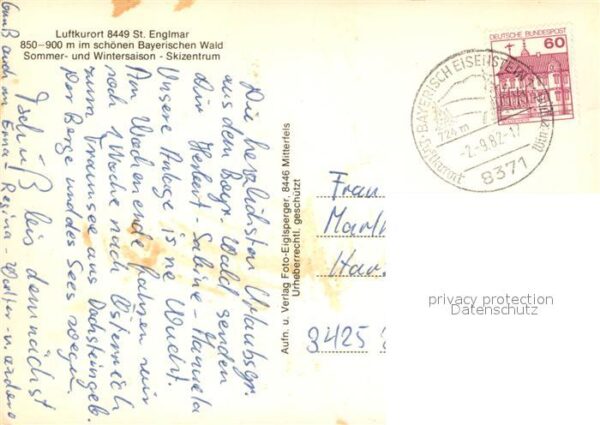 Luftkurort 8449 St. Englmar
850–900 m im schönen Bayerischen Wald
Sommer- und Wintersaison - Skizentrum
Die herzlichsten Urlaubsgr.
aus dem Bayr. Wald senden
Dir Herbert - Sabine - Manuela
Unsere Anlage is ne Wucht.
Am Wochenende fahren wir
noch 1 Woche nach Österreich
zum Traumsee aus Dachsteingeb.
Der Berge und des Sees wegen.
Tschüß bis demnächst
Gruß auch an Erna - Regina - Walter - u. andere
Aufn. u. Verlag Foto-Eiglsperger, 8446 Mitterfels
Urheberrechtl. geschützt
DEUTSCHE BUNDESPOST
60
BAYERISCH EISENSTEIN
724 m
-2.-9.82-17
8371
Luftkurort
Frau
Mart
Har
3425
privacy protection
Datenschutz